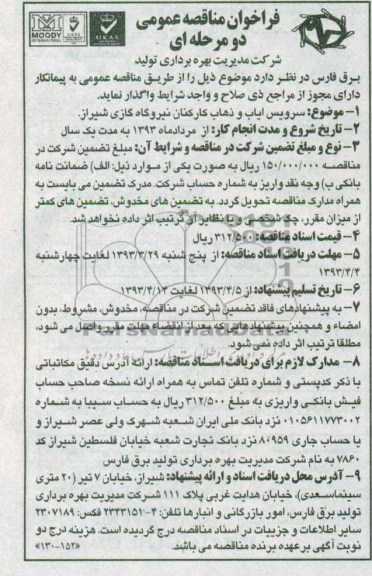 MOODY
UKAS
فراخوان مناقصه عمومی
دو مرحله ای
شرکت مدیریت بهره برداری تولید
برق فارس در نظر دارد موضوع ذیل را از طریق مناقصه عمومی به پیمانکار
دارای مجوز از مراجع ذی صلاح و واجد شرایط واگذار نماید.
۱- موضوع: سرویس ایاب و ذهاب کارکنان نیروگاه گازی شیراز.
۲- تاریخ شروع و مدت انجام کار: از مردادماه ۱۳۹۳ به مدت یک سال
۳- نوع و مبلغ تضمین شرکت در مناقصه و شرایط آن: مبلغ تضمین شرکت در
مناقصه ۱۵۰/۰۰۰/۰۰۰ ریال به صورت یکی از موارد ذیل: الف) ضمانت نامه
بانکی ب) وجه نقد واریز به شماره حساب شرکت. مدرک تضمین می بایست به
همراه مدارک مناقصه تحویل گردد. به تضمین های مخدوش، تضمین های کمتر
از میزان مقرر، چک شخصی و یا نظایر آن ترتیب اثر داده نخواهد شد.
۴- قیمت اسناد مناقصه: ۳۱۲/۵۰۰ ریال
۵- مهلت دریافت اسناد مناقصه: از پنج شنبه ۱۳۹۳/۳/۲۹ لغایت چهارشنبه
۱۳۹۳/۴/۴
۶- تاریخ تسلیم پیشنهاد: از ۱۳۹۳/۴/۵ لغایت ۱۳۹۳/۴/۱۴
۷- به پیشنهادهای فاقد تضمین شرکت در مناقصه، مخدوش، مشروط، بدون
امضاء و همچنین پیشنهادهایی که بعد از انقضاء مهلت مقرر واصل می شود،
مطلقا ترتیب اثر داده نمی شود.
۸- مدارک لازم برای دریافت اسناد مناقصه: ارائه آدرس دقیق مکاتباتی
با ذکر کدپستی و شماره تلفن تماس به همراه ارائه نسخه صاحب حساب
فیش بانکی واریزی به مبلغ ۳۱۲/۵۰۰ ریال به حساب سیبا به شماره
۰۱۰۵۶۱۱۷۷۳۰۰۲ نزد بانک ملی ایران شعبه شهرک ولی عصر شیراز و
یا حساب جاری ۸۰۹۵۹ نزد بانک تجارت شعبه خیابان فلسطین شیراز کد
۷۸۶۰ به نام شرکت مدیریت بهره برداری تولید برق فارس
۹- آدرس محل دریافت اسناد و ارائه پیشنهاد: شیراز، خیابان ۷ تیر (۲۰ متری
سینماسعدی)، خیابان هدایت غربی پلاک ۱۱۱ شرکت مدیریت بهره برداری
تولید برق فارس، امور بازرگانی و انبارها تلفن: ۴-۲۳۴۳۱۵۱ فکس: ۲۳۰۷۱۸۹
سایر اطلاعات و جزییات در اسناد مناقصه درج گردیده است. هزینه درج دو
نوبت آگهی بر عهده برنده مناقصه می باشد.
«۱۳۰-۱۵۲»
ParsNamadData